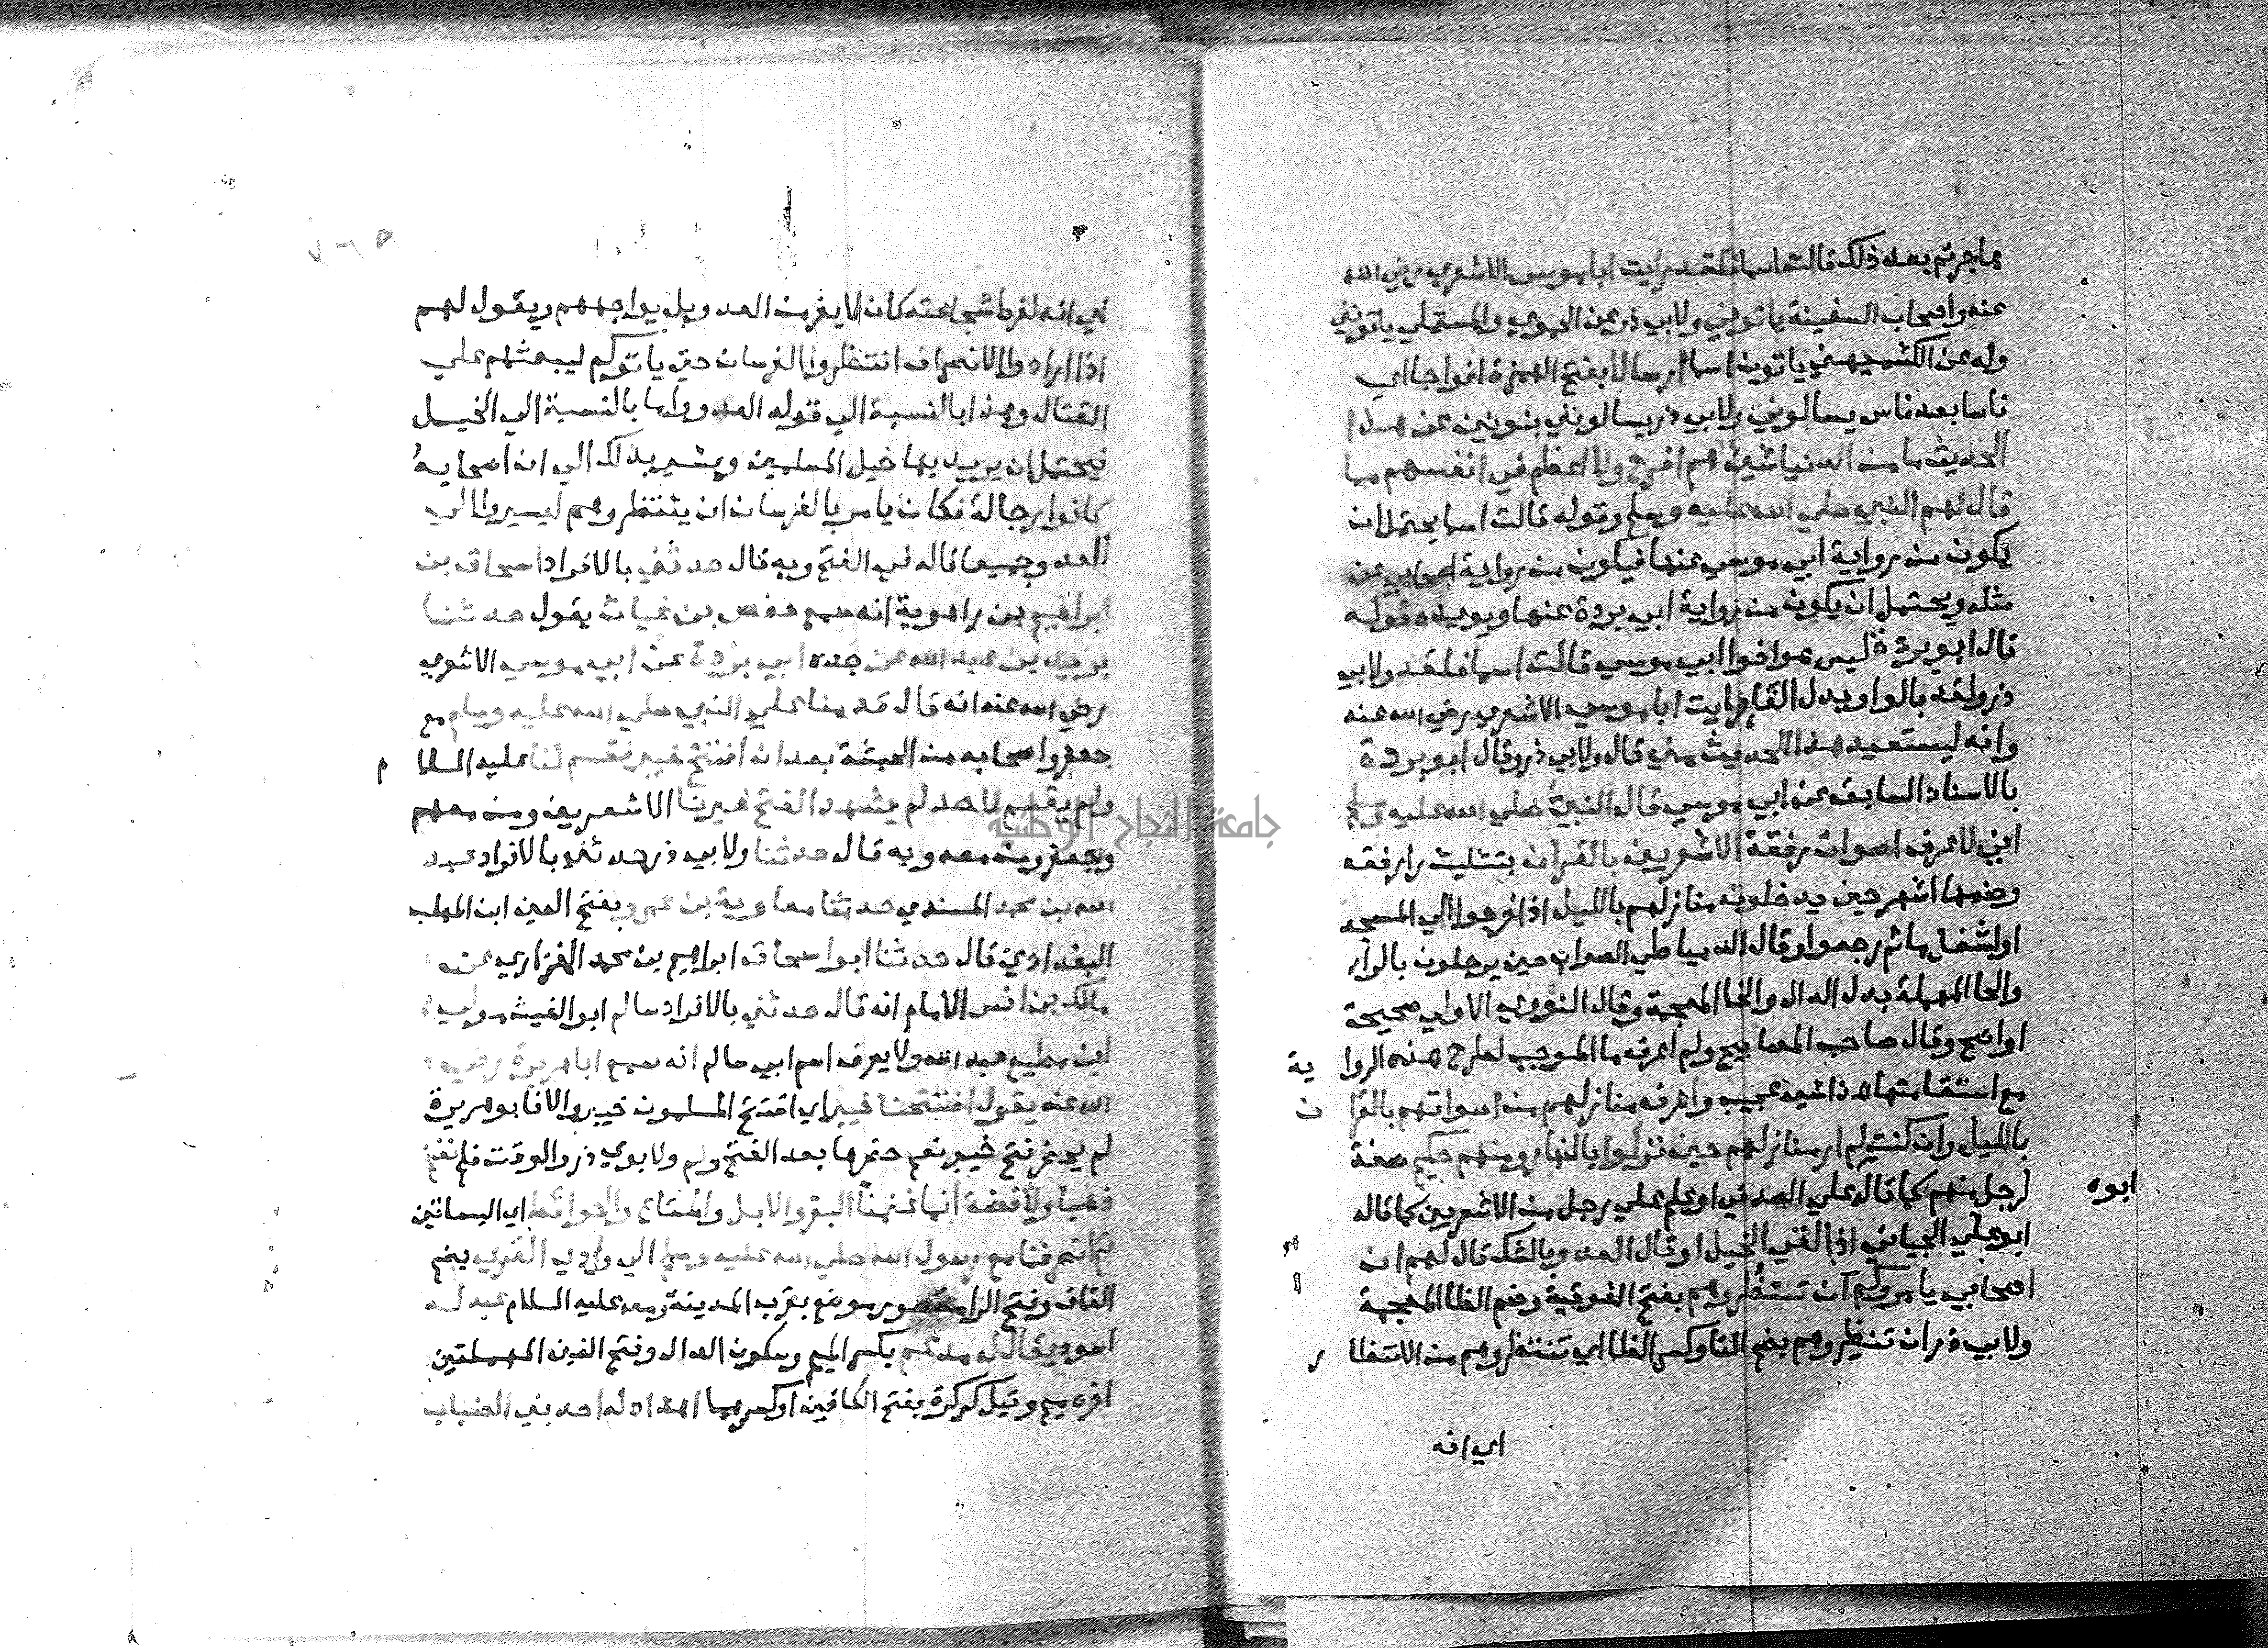 هاجرتم بعد ذلك قالت اسما فلقد رايت ابا موسي الاشعري رضي الله
عنه واصحاب السفينة ياتوني ولابي ذر عن الحموي والمستملي ياتونني
وله عن الكشميهني ياتون اسما ارسالا بفتح الهمزة افواجا اي
ناسا بعد ناس يسالوني ولابي ذر يسالونني بنونين عن هذا
الحديث ما من الدنيا شي هم افرح ولا اعظم في انفسهم مما
قال لهم النبي صلي الله عليه وسلم وقوله قالت اسما يحتمل ان
يكون من رواية ابي موسي عنها فيكون من رواية صحابي عن
مثله ويحتمل ان يكون من رواية ابي بردة عنها ويويده قوله
قال ابو بردة ليس هو اخوا ابي موسي قالت اسما فلقد ولابي
ذر ولقد بالواو بدل الفا رايت ابا موسي الاشعري رضي الله عنه
وانه ليستعيد هذا الحديث مني قال ولابي ذر وقال ابو بردة
بالاسناد السابق عن ابي موسي قال النبي صلي الله عليه وسلم
اني لاعرف اصوات رفقة الاشعريين بالقران بتثليث را رفقه
وضمها اشهر حين يدخلون منازلهم بالليل اذا خرجوا الي المسجد
او لشغل ما ثم رجعوا وقال الدمياطي الصواب حين يرحلون بالرا
والحا المهملة بدل الدال والخا المعجمة وقال النووي الاولي صحيحة
او اصح وقال صاحب المصابيح ولم اعرف ما الموجب لطرح هذه الرواية
مع استقامتها هذا شي عجيب واعرف منازلهم من اصواتهم بالقران
بالليل وان كنت لم ار منازلهم حين نزلوا بالنهار ومنهم حكيم صفة
لرجل منهم كما قال علي الصدفي او علم علي رجل من الاشعريين كما قاله
ابوه
ابو علي الجياني اذا لقي الخيل او قال العدو بالشك قال لهم ان
اصحابي يامرونكم ان تنتظروهم بفتح الفوقية وضم الظا المعجمة
ولابي ذر ان تنظروهم بضم التا وكسر الظا اي تنتظروهم من الانتظار
اي انه
اي انه لفرط شجاعته كان لا يفر من العدو بل يواجههم ويقول لهم
اذا ارادوا الانصراف انتظروا الفرسان حتي ياتوكم ليبعثهم علي
القتال وهذا بالنسبة الي قوله العدو واما بالنسبة الي الخيل
فيحتمل ان يريد بها خيل المسلمين ويشير بذلك الي ان اصحابه
كانوا رجالة فكان يامر بالفرسان ان ينتظروهم ليسيروا الي
العدو جميعا قاله في الفتح وبه قال حدثني بالافراد اسحاق بن
ابراهيم بن راهوية انه سمع حفص بن غياث يقول حدثنا
بريد بن عبد الله عن جده ابي بردة عن ابي موسي الاشعري
رضي الله عنه انه قال قدمنا علي النبي صلي الله عليه وسلم مع
جعفر واصحابه من الحبشة بعد ان افتتح خيبر فقسم لنا عليه السلام
ولم يقسم لاحد لم يشهد الفتح غيرنا الاشعريين ومن معهم
وجعفر ومن معه وبه قال حدثنا ولابي ذر حدثني بالافراد عبد
الله بن محمد المسندي حدثنا معاوية بن عمرو بفتح العين ابن المهلب
البغدادي قال حدثنا ابو اسحاق ابراهيم بن محمد الفزاري عن
مالك بن انس الامام انه قال حدثني بالافراد سالم ابو الغيث مولي
ابن مطيع عبد الله ولا يعرف اسم ابي سالم انه سمع ابا هريرة رضي
الله عنه يقول افتتحنا خيبر اي افتتح المسلمون خيبر والا فابو هريرة
لم يحضر فتح خيبر نعم حضرها بعد الفتح ولم ولابوي ذر والوقت فلم نغنم
ذهبا ولا فضة انما غنمنا البقر والابل والمتاع والحوائط اي البساتين
ثم انصرفنا مع رسول الله صلي الله عليه وسلم الي وادي القري بضم
القاف وفتح الرا مقصور موضع بقرب المدينة ومعه عليه السلام عبد له
اسود يقال له مدعم بكسر الميم وسكون الدال وفتح العين المهملتين
اخره ميم وقيل كركرة بفتح الكافين او كسرهما اهداه له احد بني الضباب
جامعة النجاح الوطنية